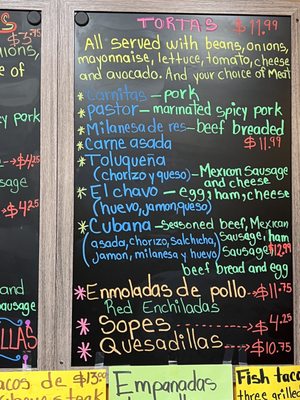 S $3.75
ONS,
e of
y pork
$4.25
sage
$4.25
and
ausage
LLAS
TORTAS $11.99
All served with beans, onions,
mayonnaise, lettuce, tomato, cheese
and avocado. And your choice of Meat
*Carnitas - pork
*pastor - marinated spicy pork
*Milanesa de res - beef breaded
*Carne asada $11.99
*Toluqueña
(chorizo y queso) - Mexican Sausage
and cheese
*El chavo - egg, ham, cheese
(huevo, jamon, queso)
*Cubana - seasoned beef, Mexican
(asada, chorizo, Salchicha, Sausage, ham
jamon, milanesa y huevo) Sausage $12.99
beef bread and egg
*Enmoladas de pollo $11.75
Red Enchiladas
*Sopes $4.25
*Quesadillas $10.75
acos de $13.00
Empanadas
Fish tac
three grilled